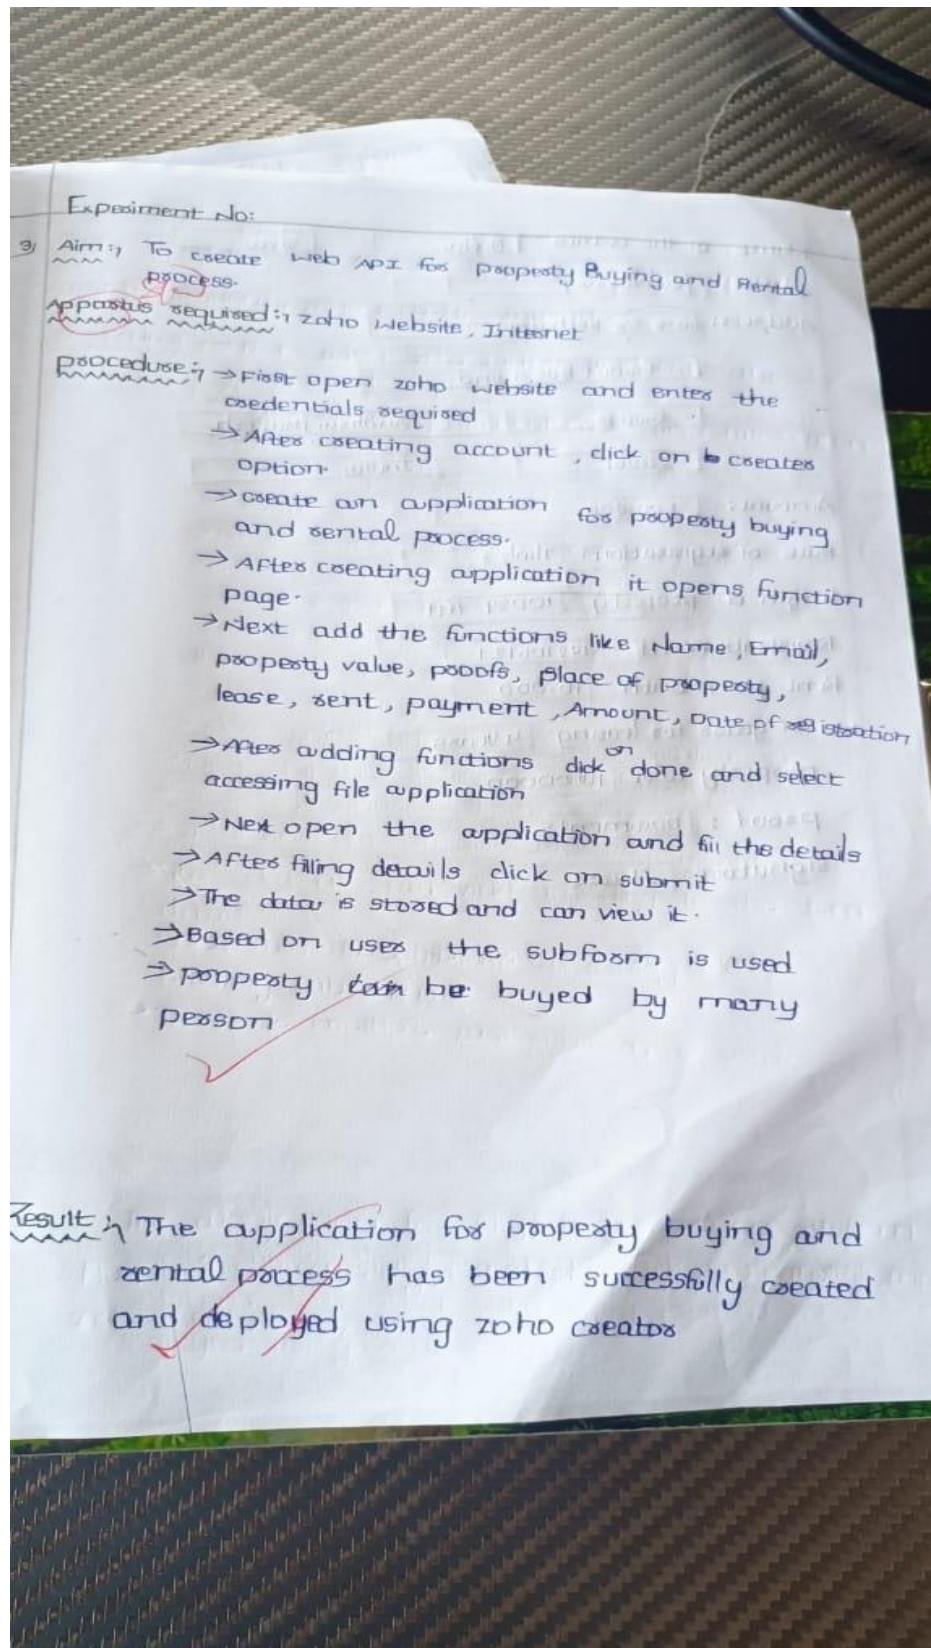 Experiment No:
3) Aim:, To create web API for property Buying and Rental
process.
Appartus required:, zoho website, Internet
procedure:, →First open zoho website and enter the
credentials required
→After creating account, click on creater
option.
→create an application for property buying
and rental process.
→After creating application it opens function
page.
→Next add the functions like Name, Email,
property value, proofs, place of property,
lease, rent, payment, Amount, Date of registration
→After adding functions click on done and select
accessing file application
→Next open the application and fill the details
→After filling details click on submit
→The data is stored and can view it.
→Based on user the subform is used
→property can be buyed by many
person
Result:, The application for property buying and
rental process has been successfully created
and deployed using zoho creator